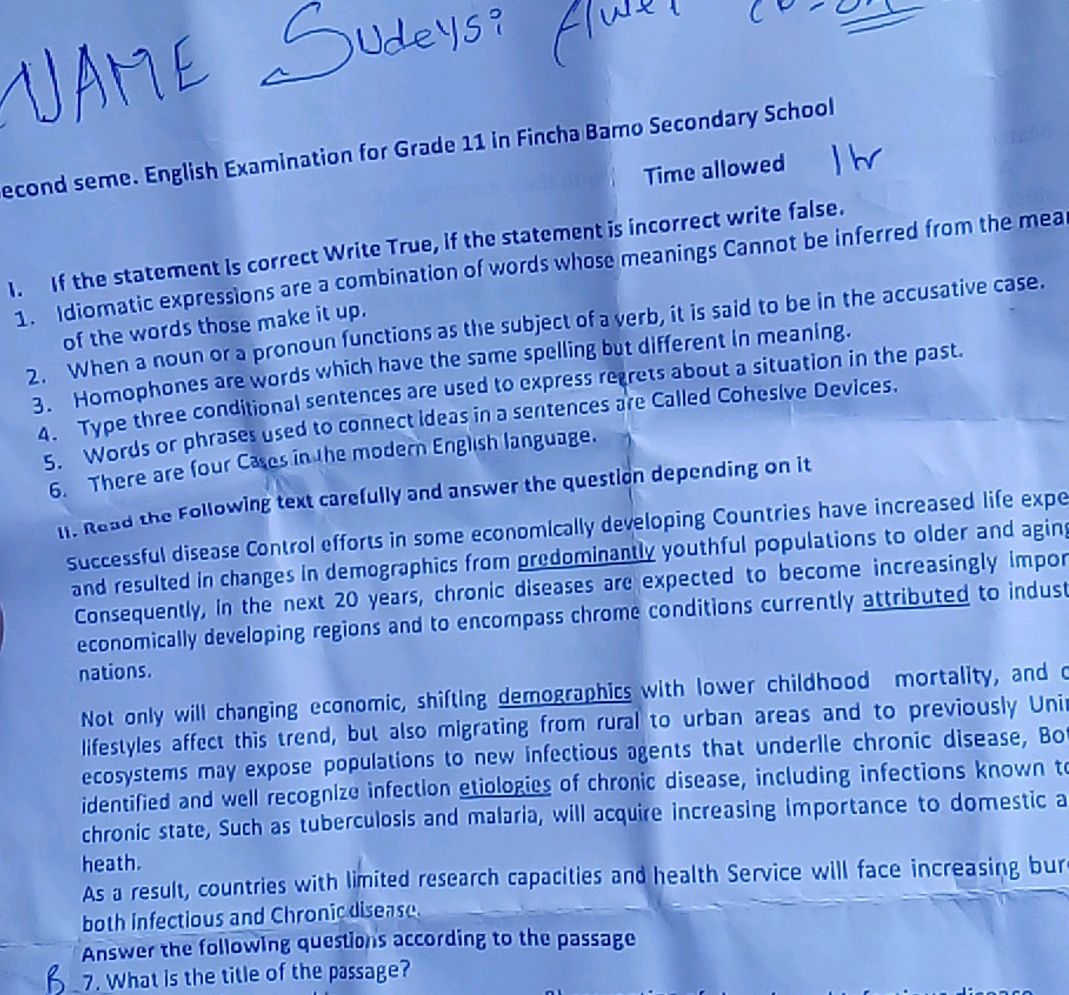 NAME Sudeysi
econd seme. English Examination for Grade 11 in Fincha Bamo Secondary School
Time allowed 1 hr
I. If the statement is correct Write True, if the statement is incorrect write false.
1. Idiomatic expressions are a combination of words whose meanings Cannot be inferred from the mea
of the words those make it up.
2. When a noun or a pronoun functions as the subject of a verb, it is said to be in the accusative case.
3. Homophones are words which have the same spelling but different in meaning.
4. Type three conditional sentences are used to express regrets about a situation in the past.
5. Words or phrases used to connect ideas in a sentences are Called Cohesive Devices.
6. There are four Cases in the modern English language.
II. Read the Following text carefully and answer the question depending on it
Successful disease Control efforts in some economically developing Countries have increased life expe
and resulted in changes in demographics from predominantly youthful populations to older and aging
Consequently, in the next 20 years, chronic diseases are expected to become increasingly impor
economically developing regions and to encompass chrome conditions currently attributed to indust
nations.
Not only will changing economic, shifting demographics with lower childhood mortality, and c
lifestyles affect this trend, but also migrating from rural to urban areas and to previously Unin
ecosystems may expose populations to new infectious agents that underlie chronic disease, Bot
identified and well recognize infection etiologies of chronic disease, including infections known to
chronic state, Such as tuberculosis and malaria, will acquire increasing importance to domestic a
heath.
As a result, countries with limited research capacities and health Service will face increasing bur
both infectious and Chronic disease.
Answer the following questions according to the passage
B 7. What is the title of the passage?